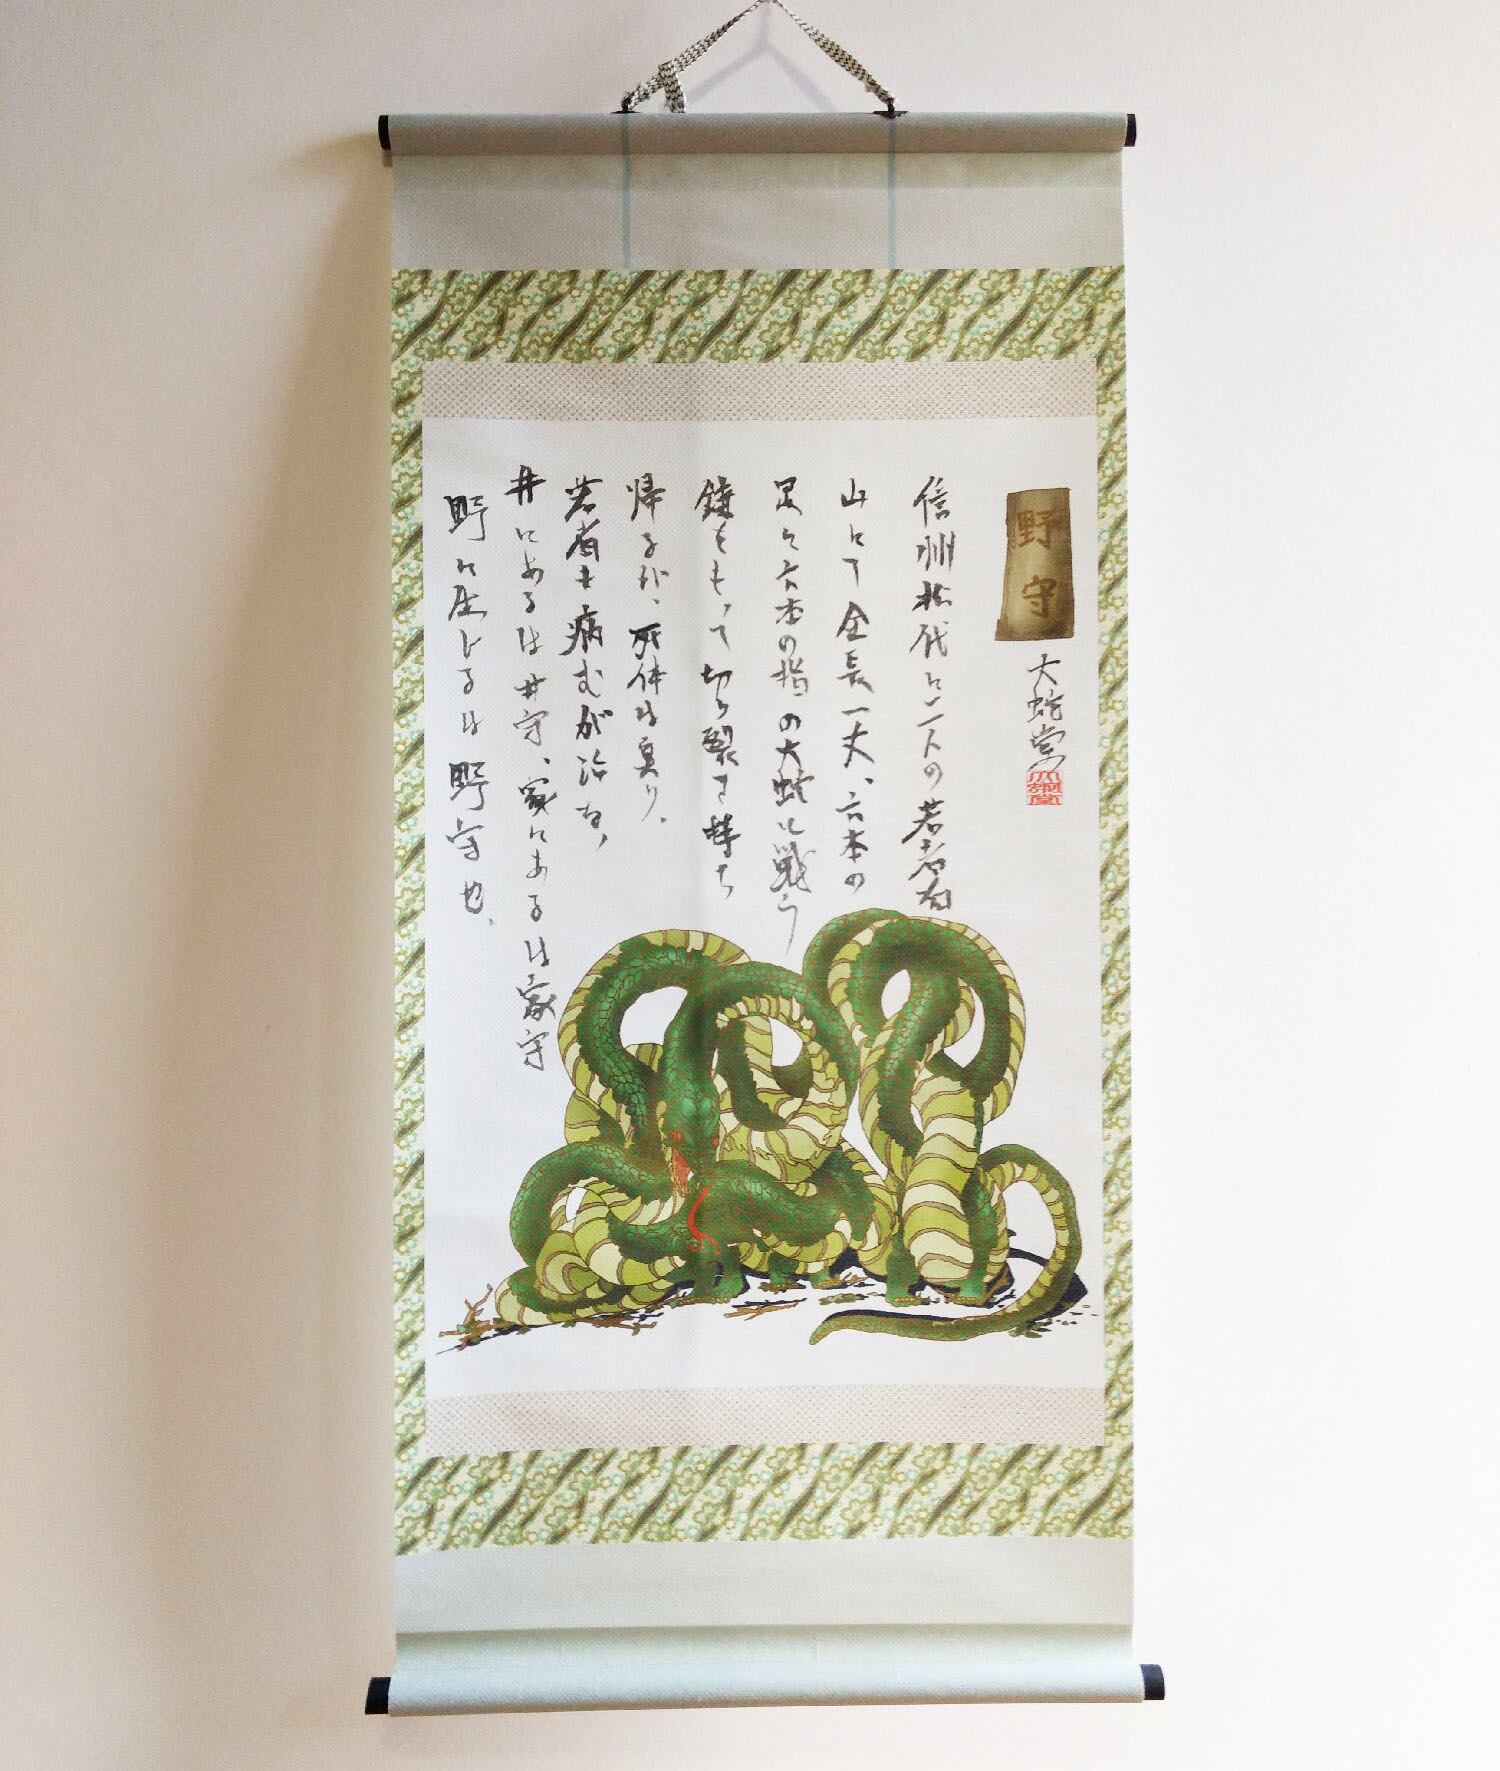 野守
大蛇堂
信州松代に一人の若者有
山にて全長一丈、六本の
足に六本の指の大蛇と戦う
鎌をもって切り裂き持ち
帰るが、死体は臭り、
若者も病むが治む、
井にあるは井守、家にあるは家守
野に在しるは野守也、